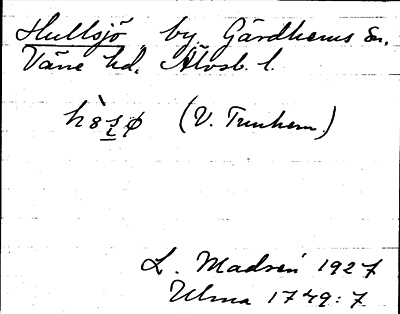 Hullsjö by, Gärdhems sn.
Väne hd. Älvsb. l.
(V. Tunhem.)
L. Madsén 1927
Ulma 1749:7